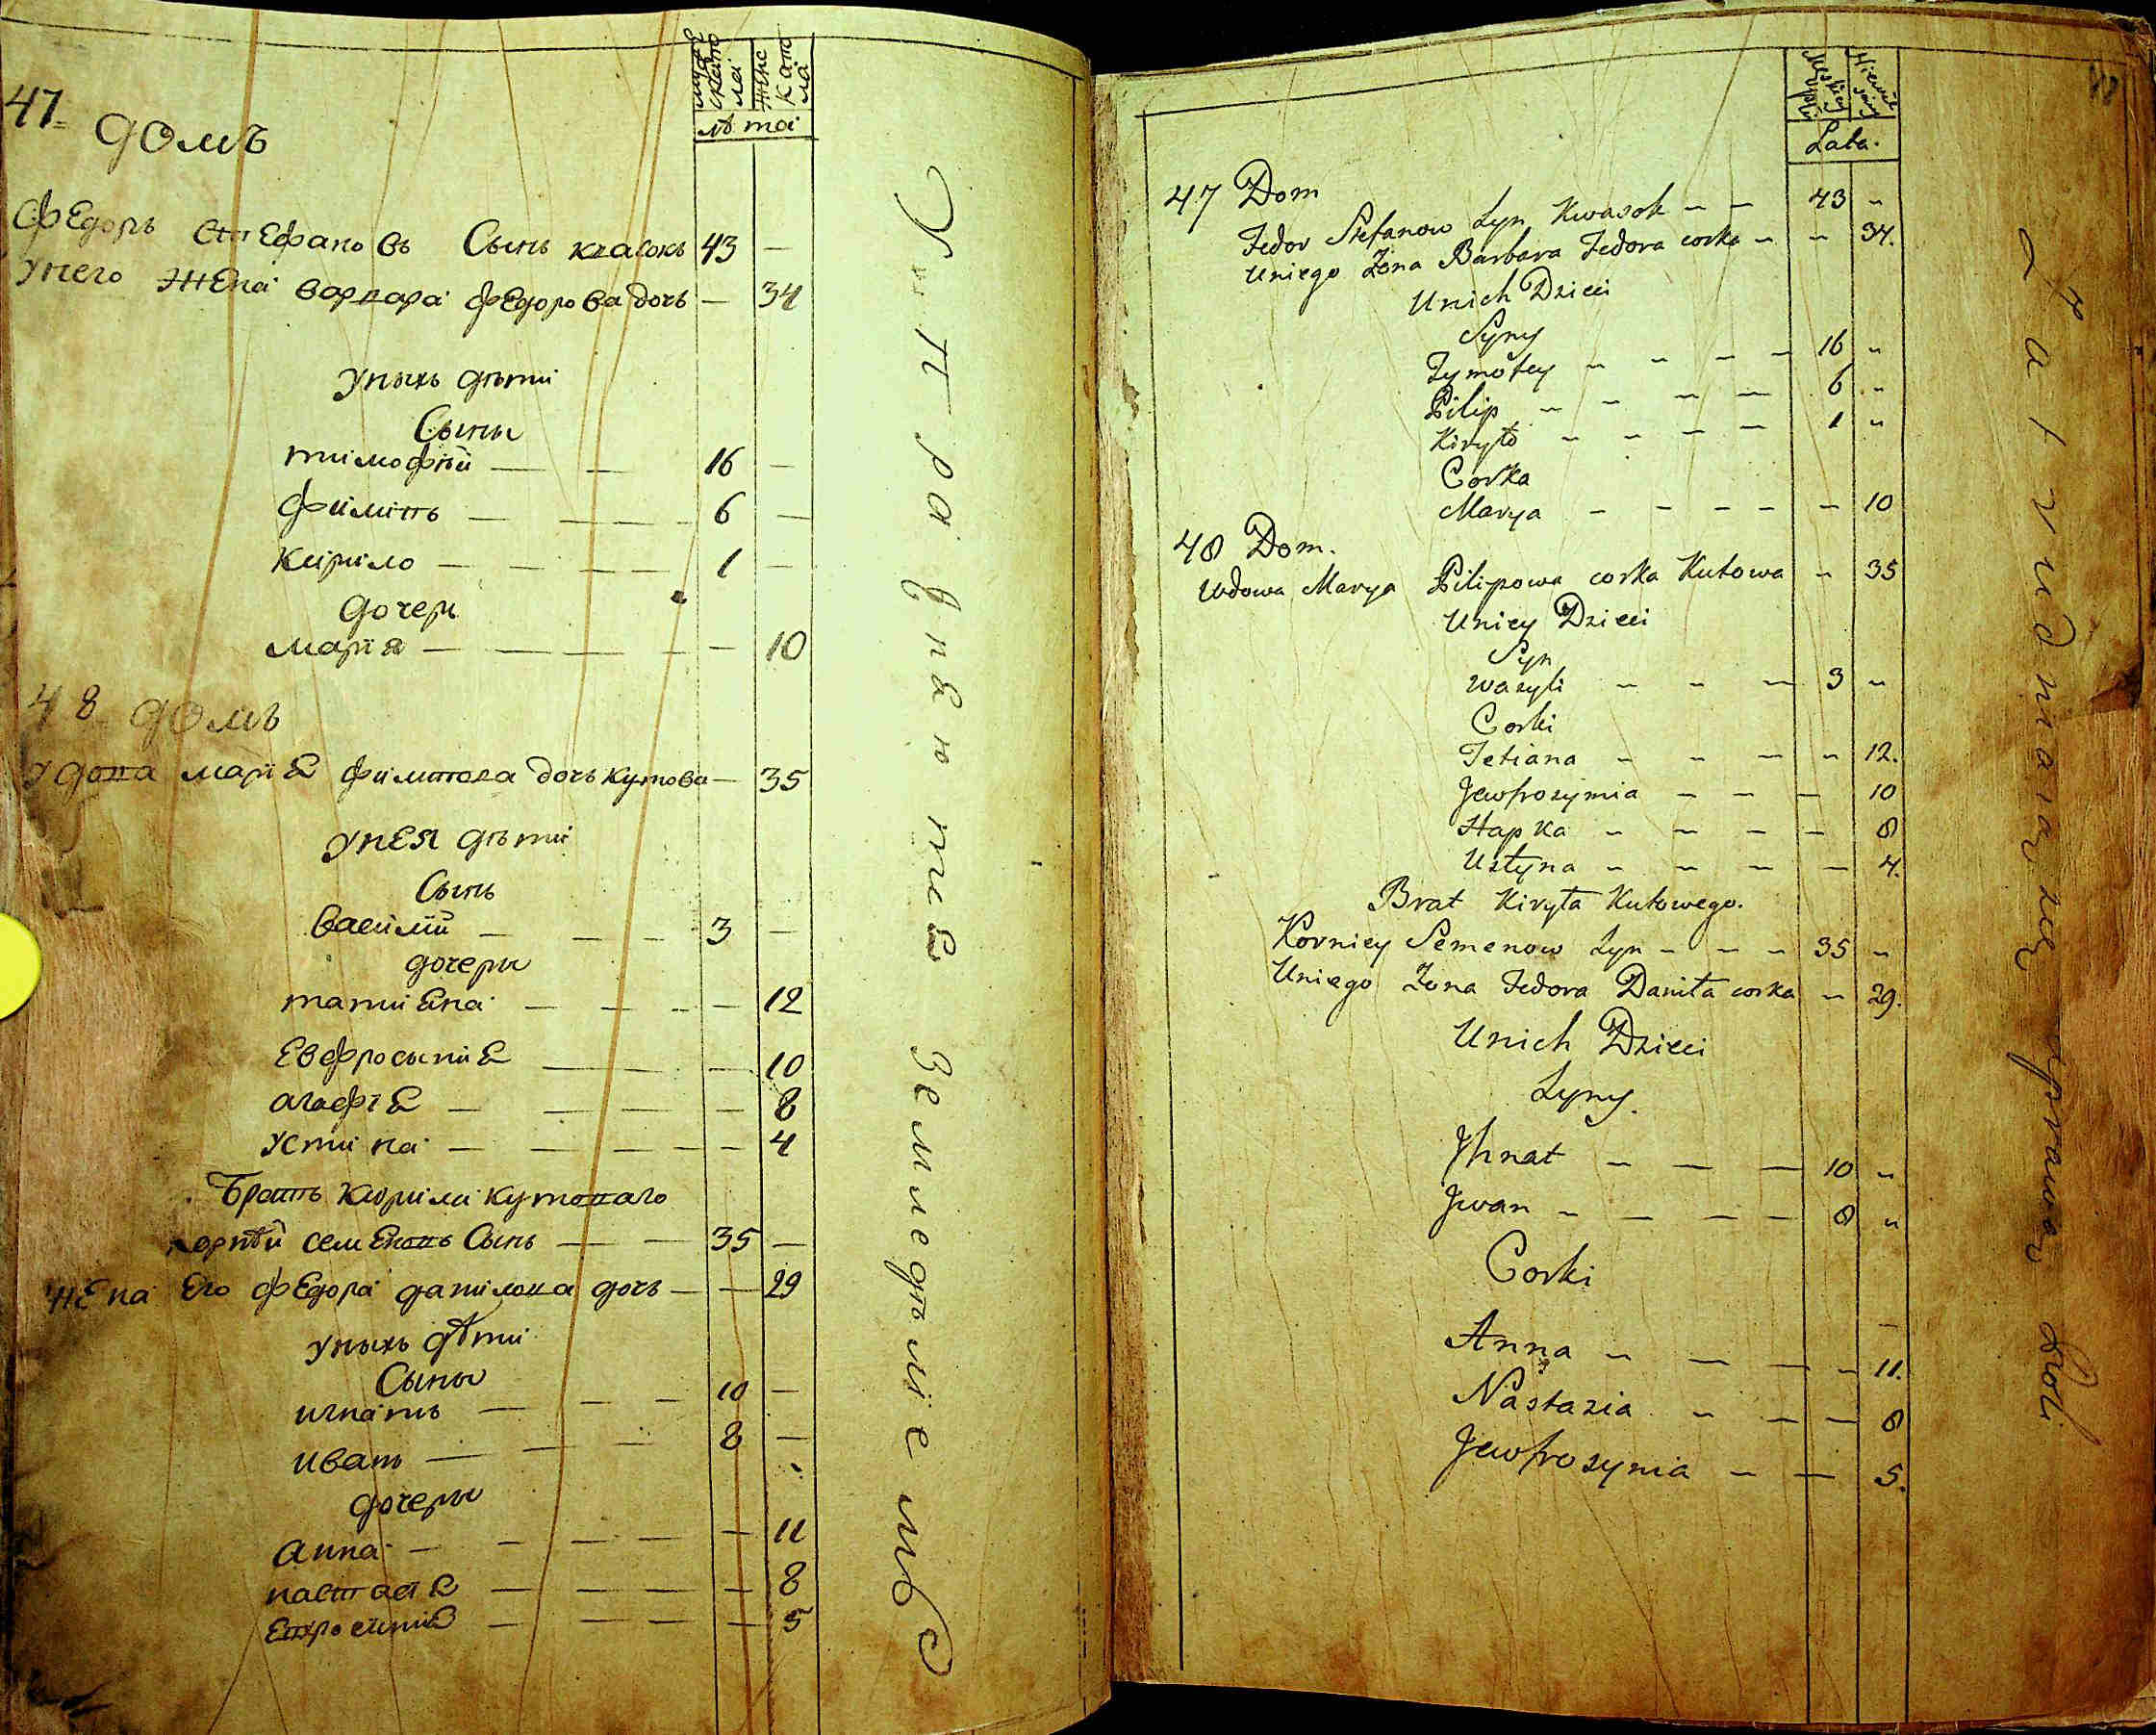 мужес
ката
лѣта
47 Домъ
Федоръ Стефановъ Сынъ квасокъ 43 —
унего жена варвара Федорова дочь — 34
уныхъ дѣти
Сыны
тимофѣй — — 16 —
филипъ — — — — 6 —
кирило — — — — 1 —
дочери
мария — — — — — 10
48 домъ
удова мариѣ филипова дочь кутова — 35
унея дѣти
Сынъ
василий — — — 3 —
дочеры
татиена — — — — 12
Евфросыниѣ — — 10
агафіѣ — — — — — 8
устина — — — — — — 4
Братъ кирила кутоваго
корнѣй семеновъ Сынъ — — 35 —
жена его федора данилова дочь — — 29
уныхъ дѣти
Сыны
игнатъ — — — 10 —
иванъ — — — 8 —
дочеры
анна — — — — — 11
настасіѣ — — — — — 8
Евфросиниѣ — — — — 5
Управляется Земледѣліемъ
Lata.
47 Dom
Fedor Stefanow Syn Kwasok — — 43 „
Uniego Zona Barbara Fedora corka — „ 34.
Unich Dzieci
Syny
Tymofey — — — — 16 „
Pilip — — — — 6 „
Kiryło — — — — 1 „
Corka
Marya — — — — — 10
48 Dom.
Wdowa Marya Pilipowa corka Kutowa „ 35
Uniey Dzieci
Syn
Wasyli — — — 3 „
Corki
Tetiana — — — „ 12.
Jewfrosymia — — — 10
Hapka — — — — 8
Ustyna — — — — 4.
Brat Kiryła Kutowego.
Korniey Semenow Syn — — — 35 „
Uniego Zona Fedora Daniła corka — 29.
Unich Dzieci
Syny.
Jhnat — — — 10 „
Jwan — — — — 8 „
Corki
Anna — — — — 11.
Nastazia — — — 8
Jewfrosynia — — 5.
Zatrudniaią się uprawą Roli